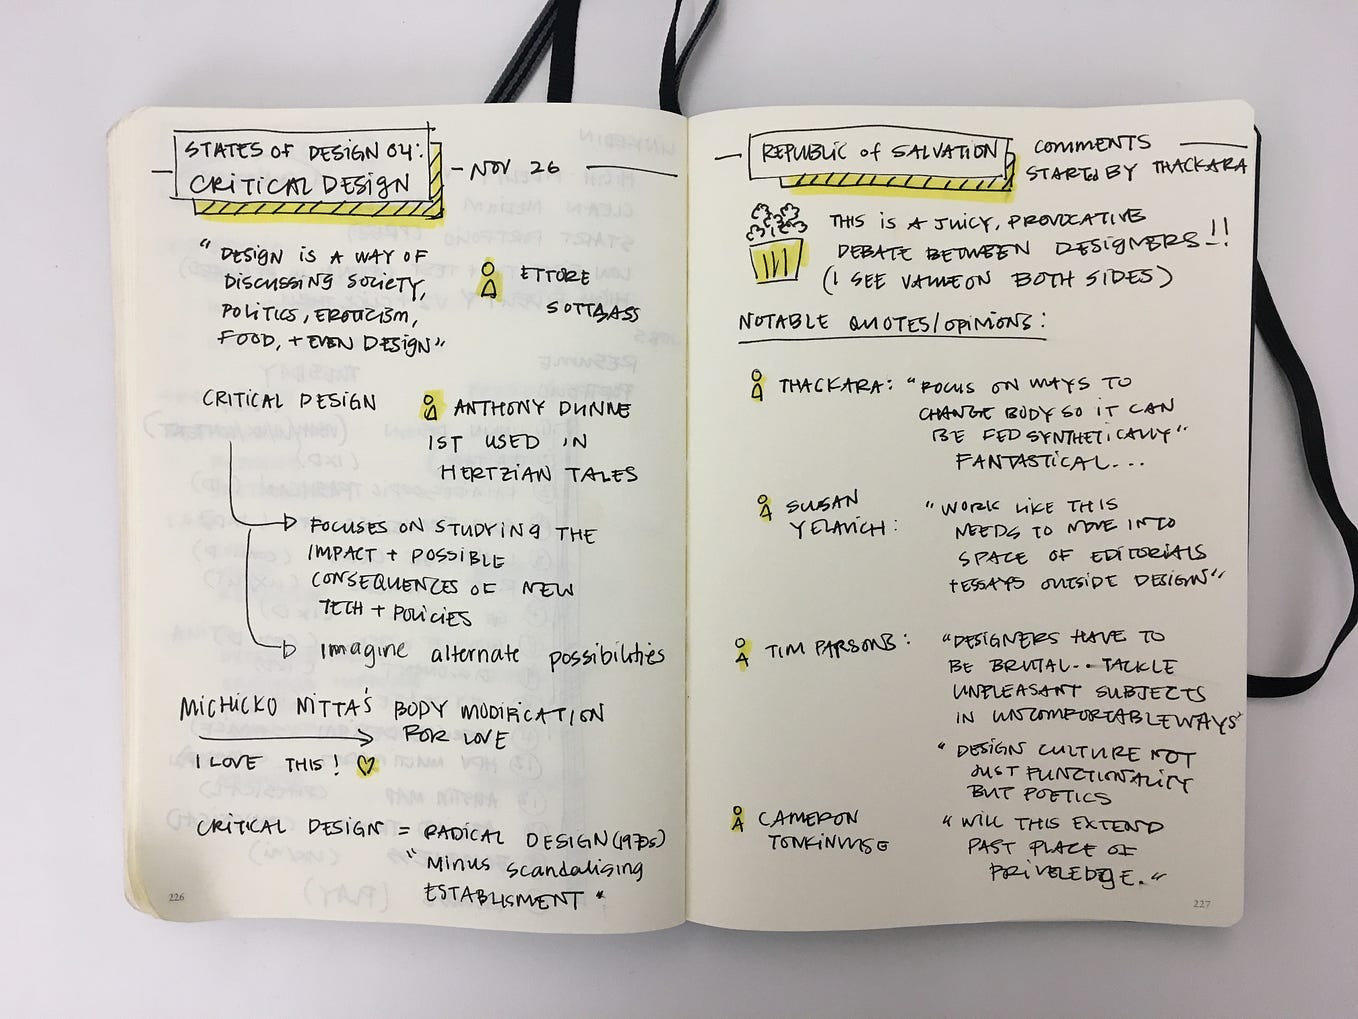 STATES OF DESIGN 04:
CRITICAL DESIGN
- NOV 26
"DESIGN IS A WAY OF
DISCUSSING SOCIETY,
POLITICS, EROTICISM,
FOOD, + EVEN DESIGN"
ETTORE
SOTTSASS
CRITICAL DESIGN
ANTHONY DUNNE
1ST USED IN
HERTZIAN TALES
FOCUSES ON STUDYING THE
IMPACT + POSSIBLE
CONSEQUENCES OF NEW
TECH + POLICIES
Imagine alternate possibilities
MICHICKO NITTA'S BODY MODIFICATION
FOR LOVE
I LOVE THIS!
CRITICAL DESIGN = RADICAL DESIGN (1970s)
"MINUS scandalising
ESTABLISMENT"
226
REPUBLIC of SALVATION
COMMENTS
STARTED BY THACKARA
THIS IS A JUICY, PROVOCATIVE
DEBATE BETWEEN DESIGNERS!!
(I SEE VALUE ON BOTH SIDES)
NOTABLE QUOTES/OPINIONS:
THACKARA: "FOCUS ON WAYS TO
CHANGE BODY SO IT CAN
BE FED SYNTHETICALLY"
FANTASTICAL...
SUSAN
YELAVICH:
"WORK LIKE THIS
NEEDS TO MOVE INTO
SPACE OF EDITORIALS
+ESSAYS OUTSIDE DESIGN"
TIM PARSONS:
"DESIGNERS HAVE TO
BE BRUTAL.. TACKLE
UNPLEASANT SUBJECTS
IN UNCOMFORTABLE WAYS"
"DESIGN CULTURE NOT
JUST FUNCTIONALITY
BUT POETICS
CAMERON
TONKINWISE
"WILL THIS EXTEND
PAST PLACE OF
PRIVELEDGE."
227